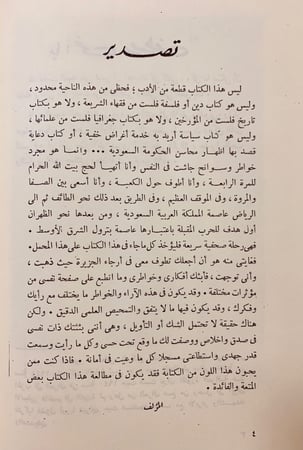 تصدير
ليس هذا الكتاب قطعة من الأدب ؛ فحظى من هذه الناحية محدود ،
وليس هو كتاب دين أو فلسفة فلست من فقهاء الشريعة ، ولا هو بكتاب
تاريخ فلست من المؤرخين ، ولا هو بكتاب جغرافيا فلست من علمائها ،
وليس هو كتاب سياسة أريد به خدمة أغراض خفية ، أو كتاب دعاية
قصد بها اظهار محاسن الحكومة السعودية ٠٠٠ وانما هو مجرد
خواطر وسوانح جاشت في النفس وأنا أتهيأ لحج بيت الله الحرام
للمرة الرابعة ، وأنا أطوف حول الكعبة ، وأنا أسعى بين الصفا
والمروة ، وفى الموقف العظيم ، وفى الطريق بعد ذلك نحو الطائف ثم الى
الرياض عاصمة المملكة العربية السعودية ، ومن بعدها نحو الظهران
أول هدف للحرب المقبلة باعتبارها عاصمة بترول الشرق الأوسط ٠
فهى رحلة صحفية سريعة فليؤخذ كل ما جاء فى هذا الكتاب على هذا المحمل ٠
فغايتى منه هو أن أجعلك تطوف معى فى أرجاء الجزيرة حيث ذهبت ،
وأنى توجهت ، فأبثك أفكارى وخواطرى وما انطبع على صفحة نفسى من
مؤثرات مختلفة ٠ وقد يكون فى هذه الآراء والخواطر ما يختلف مع رأيك
وفكرك ، وقد يكون فيها ما لا يتفق والتمحيص العلمى الدقيق ٠ ولكن
هناك حقيقة لا تحتمل الشك أو التأويل ، وهى أننى بثثتك ذات نفسى
فى صدق واخلاص ووصفت لك ما وقع تحت حسى وكل ما رأيت وسمعت
قدر جهدى واستطاعتى مسجلا كل ما وعيت فى أمانة ٠ فاذا كنت ممن
يحبون هذا اللون من الكتابة فقد يكون فى مطالعة هذا الكتاب بعض
المتعة والفائدة ٠
المؤلف
٤